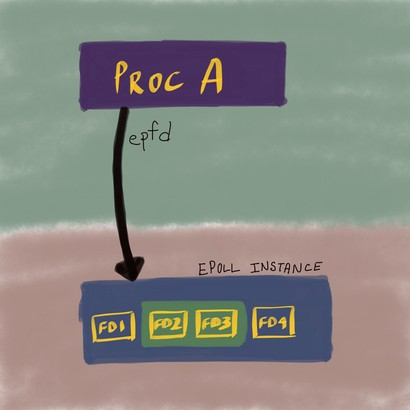 PROC A
epfd
EPOLL INSTANCE
FD1 FD2 FD3 FD4